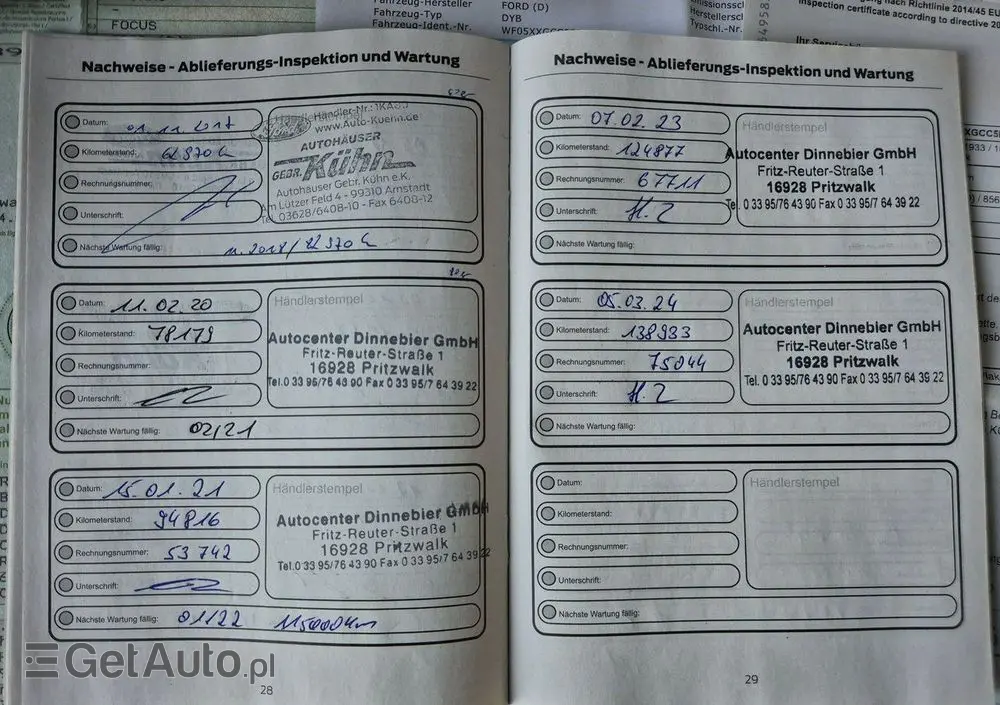 FOCUS
Fahrzeug-Hersteller FORD (D)
Fahrzeug-Typ DYB
Fahrzeug-Ident.-Nr.
nach Richtlinie 2014/45 EU
inspection certificate according to directive 20
Typschl.-Nr.
Nachweise - Ablieferungs-Inspektion und Wartung
Datum: 01.11.2017
Kilometerstand:
Rechnungsnummer:
Unterschrift:
Nächste Wartung fällig:
Händler-Nr.:
www.Auto-Kuehn.de
AUTOHÄUSER
GEBR. Kühn
Autohäuser Gebr. Kühn e.K.
Am Lützer Feld 4 - 99310 Arnstadt
Tel. 03628/6408-10 - Fax 6408-12
Datum: 11.02.20
Kilometerstand: 78179
Rechnungsnummer:
Unterschrift:
Nächste Wartung fällig: 02/21
Händlerstempel
Autocenter Dinnebier GmbH
Fritz-Reuter-Straße 1
16928 Pritzwalk
Tel.0 33 95/76 43 90 Fax 0 33 95/7 64 39 22
Datum: 15.01.21
Kilometerstand: 94816
Rechnungsnummer: 53742
Unterschrift:
Nächste Wartung fällig: 01/22 115000km
Händlerstempel
Autocenter Dinnebier GmbH
Fritz-Reuter-Straße 1
16928 Pritzwalk
Tel.0 33 95/76 43 90 Fax 0 33 95/7 64 39 22
28
Nachweise - Ablieferungs-Inspektion und Wartung
Datum: 07.02.23
Kilometerstand: 124877
Rechnungsnummer: 67711
Unterschrift:
Nächste Wartung fällig:
Händlerstempel
Autocenter Dinnebier GmbH
Fritz-Reuter-Straße 1
16928 Pritzwalk
Tel. 0 33 95/76 43 90 Fax 0 33 95/7 64 39 22
Datum: 05.03.24
Kilometerstand: 138933
Rechnungsnummer: 75044
Unterschrift:
Nächste Wartung fällig:
Händlerstempel
Autocenter Dinnebier GmbH
Fritz-Reuter-Straße 1
16928 Pritzwalk
Tel. 0 33 95/76 43 90 Fax 0 33 95/7 64 39 22
Datum:
Kilometerstand:
Rechnungsnummer:
Unterschrift:
Nächste Wartung fällig:
Händlerstempel
29
GetAuto.pl